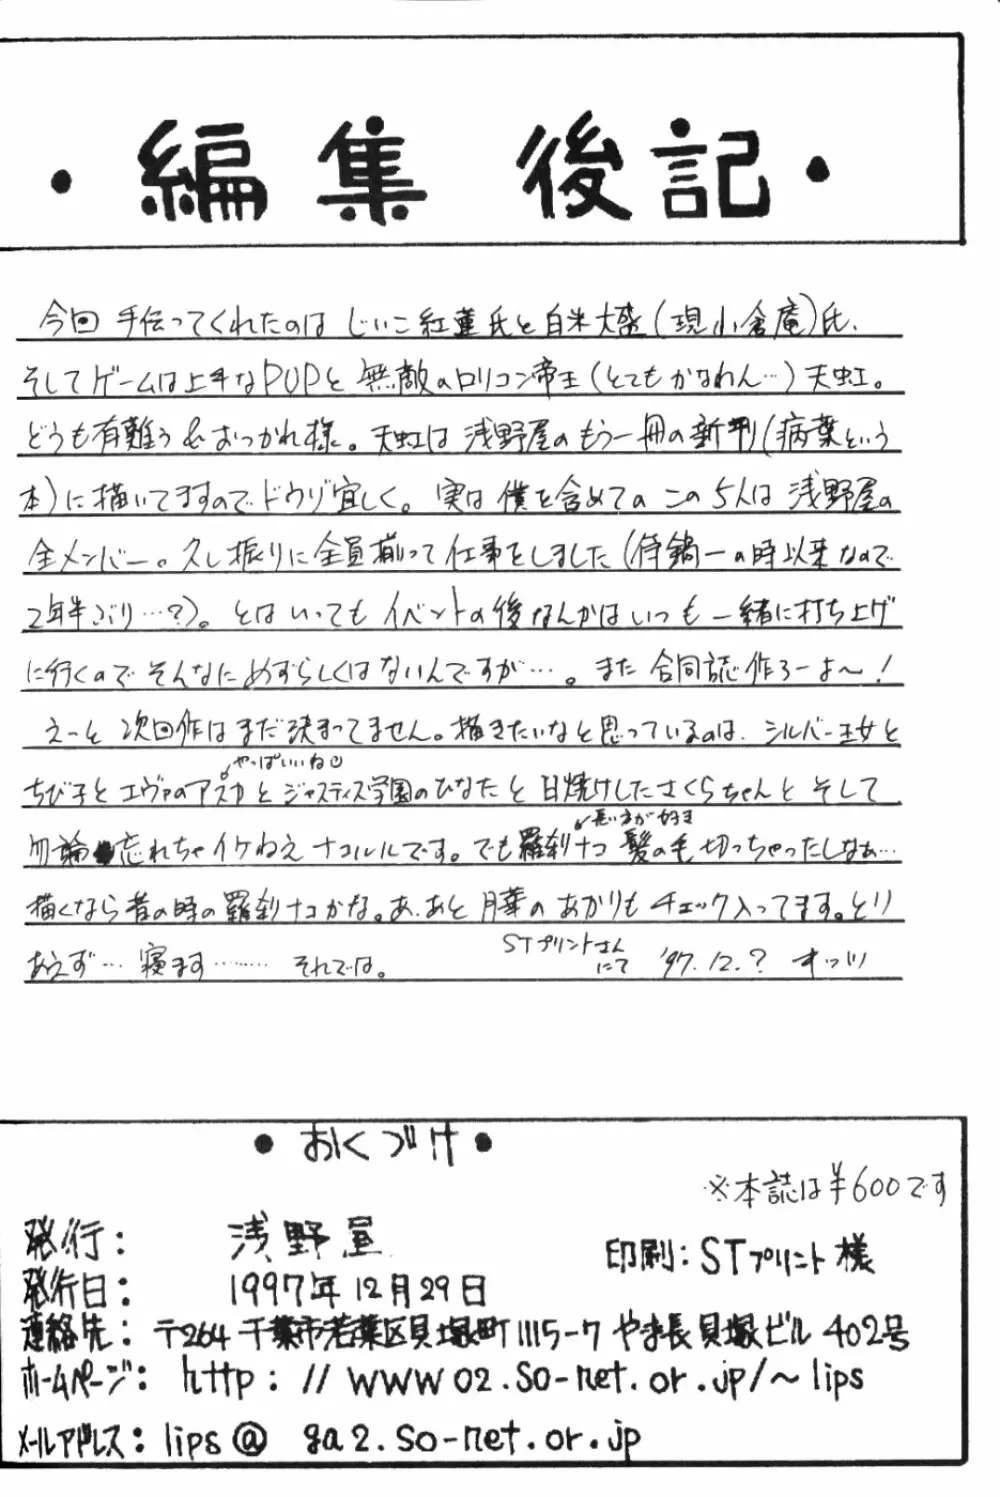 ・編集後記・
今回手伝ってくれたのはじいこ紅蓮氏と白米大盛(現小倉庵)氏、
そしてゲームは上手なPUPと無敵のロリコン帝王(とてもかなわん…)天虹。
どうも有難う&おつかれ様。天虹は浅野屋のもう一冊の新刊(病葉という
本)に描いてますのでドウゾ宜しく。実は僕を含めてのこの5人は浅野屋の
全メンバー。久し振りに全員揃って仕事をしました(侍鍋一の時以来なので
2年半ぶり…?)。とはいってもイベントの後なんかはいつも一緒に打ち上げ
に行くのでそんなにめずらしくはないんですが…。また合同誌作ろーよ〜!
えーと次回作はまだ決まってません。描きたいなと思っているのは、シルバー王女と
やっぱいいね
ちび子とエヴァのアスカとジャスティス学園のひなたと日焼けしたさくらちゃんとそして
長い方が好き
勿論忘れちゃイケねえナコルルです。でも羅刹ナコ髪の毛切っちゃったしなぁ…
描くなら昔の時の羅刹ナコかな。あ、あと月華のあかりもチェック入ってます。とり
あえず…寝ます……… それでは。 STプリントさんにて '97.12.?
・おくづけ・
※本誌は¥600です
発行: 浅野屋
印刷:STプリント様
発行日: 1997年12月29日
連絡先:〒264千葉市若葉区貝塚町1115-7やま長貝塚ビル402号
ホームページ: http://www02.so-net.or.jp/~lips
メールアドレス:lips@ga2.so-net.or.jp